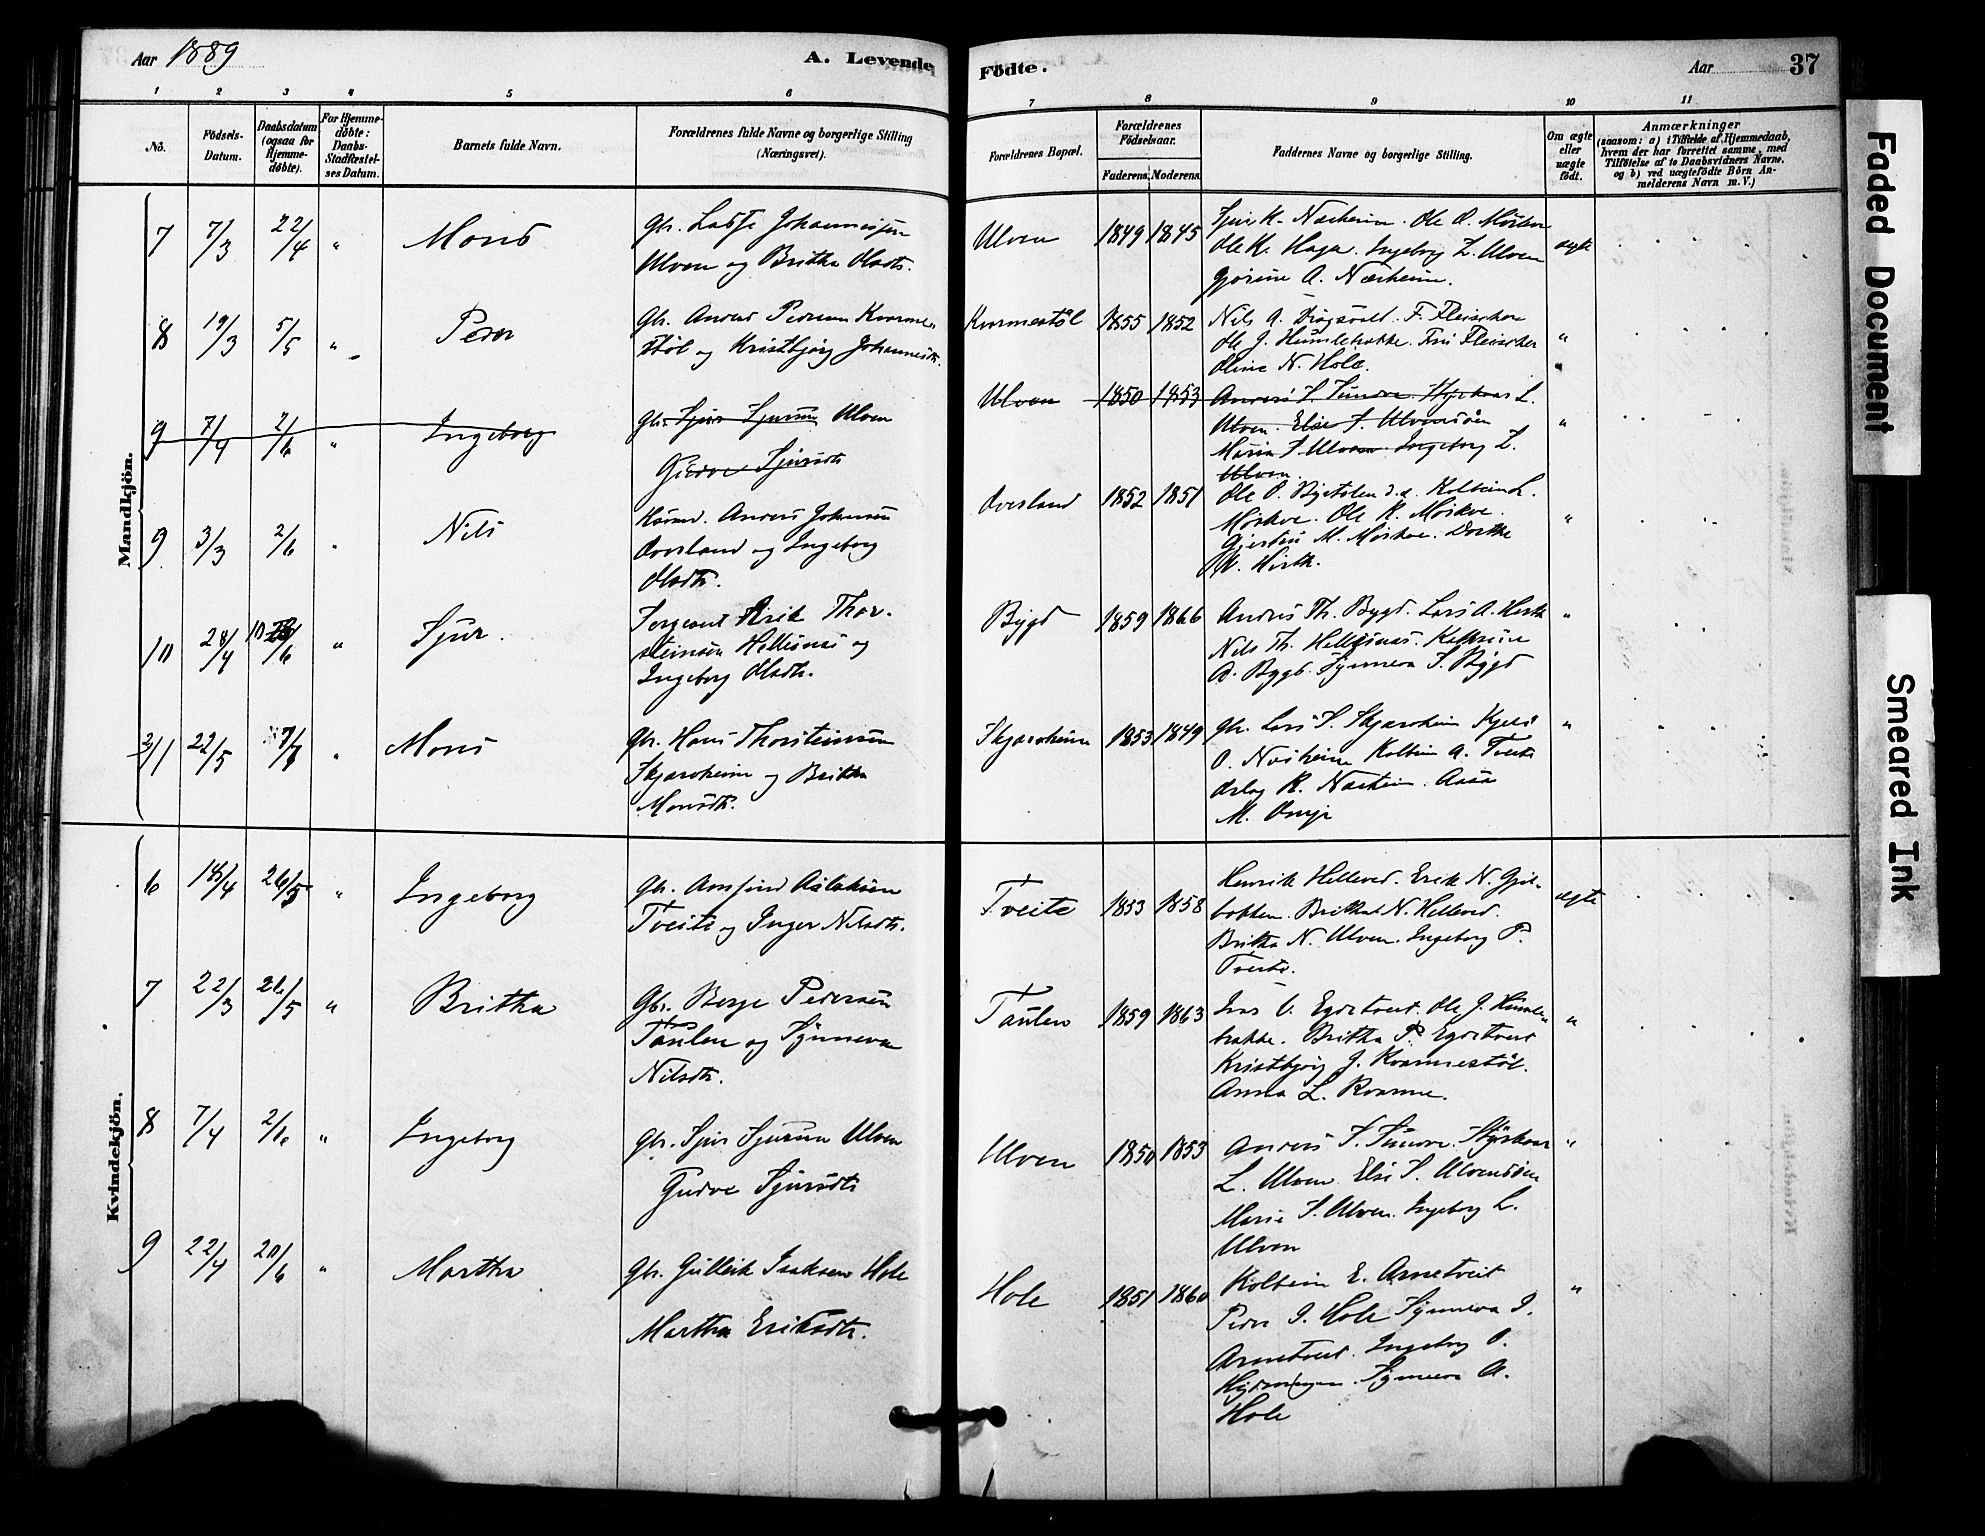 Aar 1889
A. Levende
Födte.
Aar
37
1 2 3 4 5 6
7 8 9 10 11
No.
Födsels-
Datum.
Daabsdatum
(ogsaa for
Hjemme-
døbte).
For Hjemme-
døbte:
Daabs-
Stadfæstel-
ses Datum.
Barnets fulde Navn.
Forældrenes fulde Navne og borgerlige Stilling
(Næringsvei).
Forældrenes Bopæl.
Forældrenes
Födselsaar.
Faderens. Moderens.
Faddernes Navne og borgerlige Stilling.
Om ægte
eller
uægte
født.
Anmærkninger
(saasom: a) i Tilfælde af Hjemmedaab,
hvem der har forrettet samme, med
Tilføielse af to Daabsvidners Navne,
og b) ved uægtefødte Börn An-
melderens Navn m. V.)
Mandkjön.
7 7/3 22/4 " Mons
Gbr. Johannessen
Ulven og Britha Olsdtr.
Ulven 1849 1845
Ole O.
Ole K. Haga. Ingeborg L. Ulven
A. Næsheim.
ægte
8 19/3 5/5 " Peder
Gbr. Anders Pedersen Kvarme-
stöl og Kristbjörg Johannesdtr.
Kvarmestöl 1855 1852
Nils A. F. Fleischer
Ole J. Humlebrække. Fru Fleischer
Oline N. Hole.
"
9 7/4 2/6 " Ingeborg
Gbr. Sjur Sjursen Ulven
Gudve Sjursdtr
Ulven 1850 1853
Anders S. Styrkaar L.
Ulven. Else S.
Maria S Ulven. Ingeborg L.
Ulven.
"
9 3/3 2/6 " Nils
Anders Johnsen
og Ingeborg
Olsdtr.
1852 1851
Ole P. Kolbein L.
Mörkve. Ole K. Mörkve.
M. Mörkve. Dorthe
"
10 28/4 10/6 " Sjur.
Sergeant Erik Thor-
steinsen Hellesnæs og
Ingeborg Olsdtr.
Bygd 1859 1866
Anders Th. Bygd. Lars A.
Nils Th. Hellesnæs. Kathrine
A. Bygd. Synneva S. Bygd
"
11 22/5 7/7 " Mons
Gbr. Hans Thorsteinsen
Skjærvheim og Britha
Monsdtr.
Skjærvheim 1853 1849
Gbr. Lars S. Skjærvheim
O. Næsheim Kolbein A. Tveite
K. Næsheim. Aasa
M.
"
Kvindekjön.
6 18/4 26/5 " Ingeborg
Gbr. Arnfind Aslaksen
Tveite og Inger Nilsdtr.
Tveite 1853 1858
Henrik Helleved. Erik N. Gjel-
bakken. Britha N. Helleved.
Britha N. Ulven. Ingeborg P.
Tveite.
ægte
7 22/3 26/5 " Britha
Gbr. Berge Pedersen
Taulen og Synneva
Nilsdtr.
Taulen 1859 1863
Ole J. Humle-
brække. Britha P.
Kristbjörg J. Kvarmestöl.
Anna L. Kvarme.
"
8 7/4 2/6 " Ingeborg
Gbr. Sjur Sjursen Ulven
Gudve Sjursdtr
Ulven 1850 1853
Anders S. Styrkaar
L. Ulven. Else S.
Marie S. Ulven. Ingeborg L.
Ulven
"
9 22/4 20/6 " Martha
Gbr. Gulleik Isaksen Hole
Martha Eriksdtr.
Hole 1851 1860
Kolbein E. Armetveit
Peder I. Hole Synneva I.
Armetveit. Ingeborg O.
Synneva A.
Hole
"
Faded Document
Smeared Ink